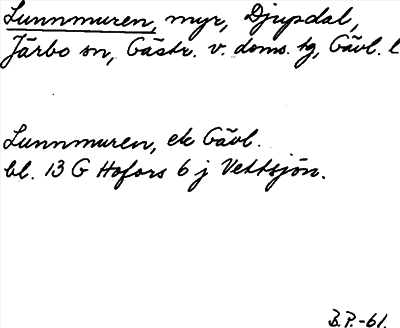 Lunnmuren, myr, Djupdal,
Järbo sn, Gästr. v. doms. tg, Gävl. l
Lunnmuren, ek Gävl.
bl. 13 G Hofors 6 j Vettsjön.
B.P.-61.